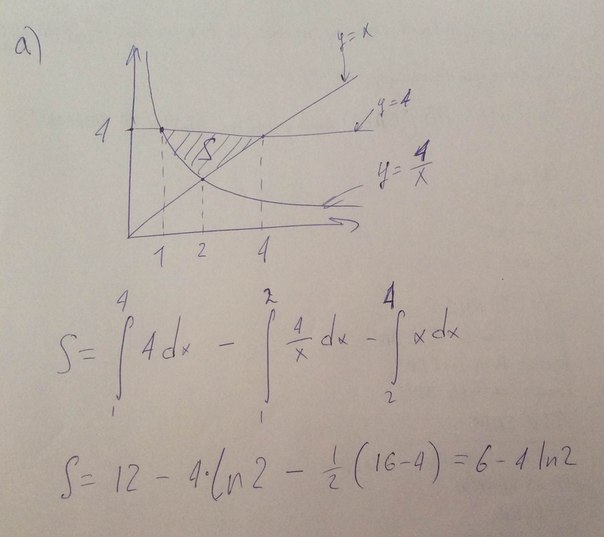 a)
y=x
y=4
4
S
y= 4/x
1 2 4
S= ∫₁⁴ 4dx - ∫₁² 4/x dx - ∫₂⁴ xdx
S= 12 - 4·ln2 - 1/2 (16-4) = 6-4 ln2